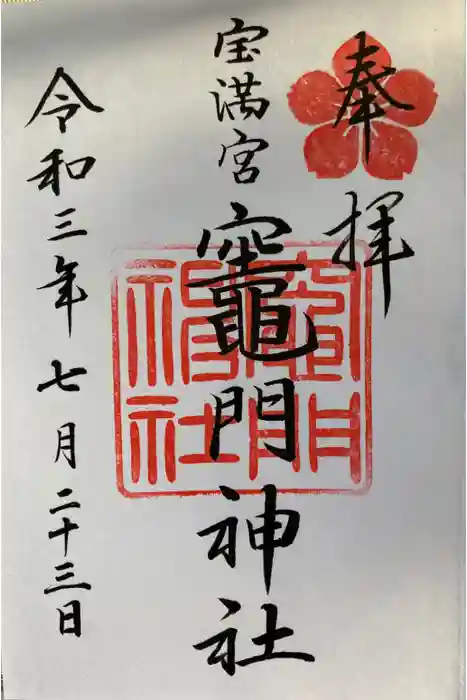 奉拝
宝満宮
竈門神社
竈門神社
令和三年七月二十三日